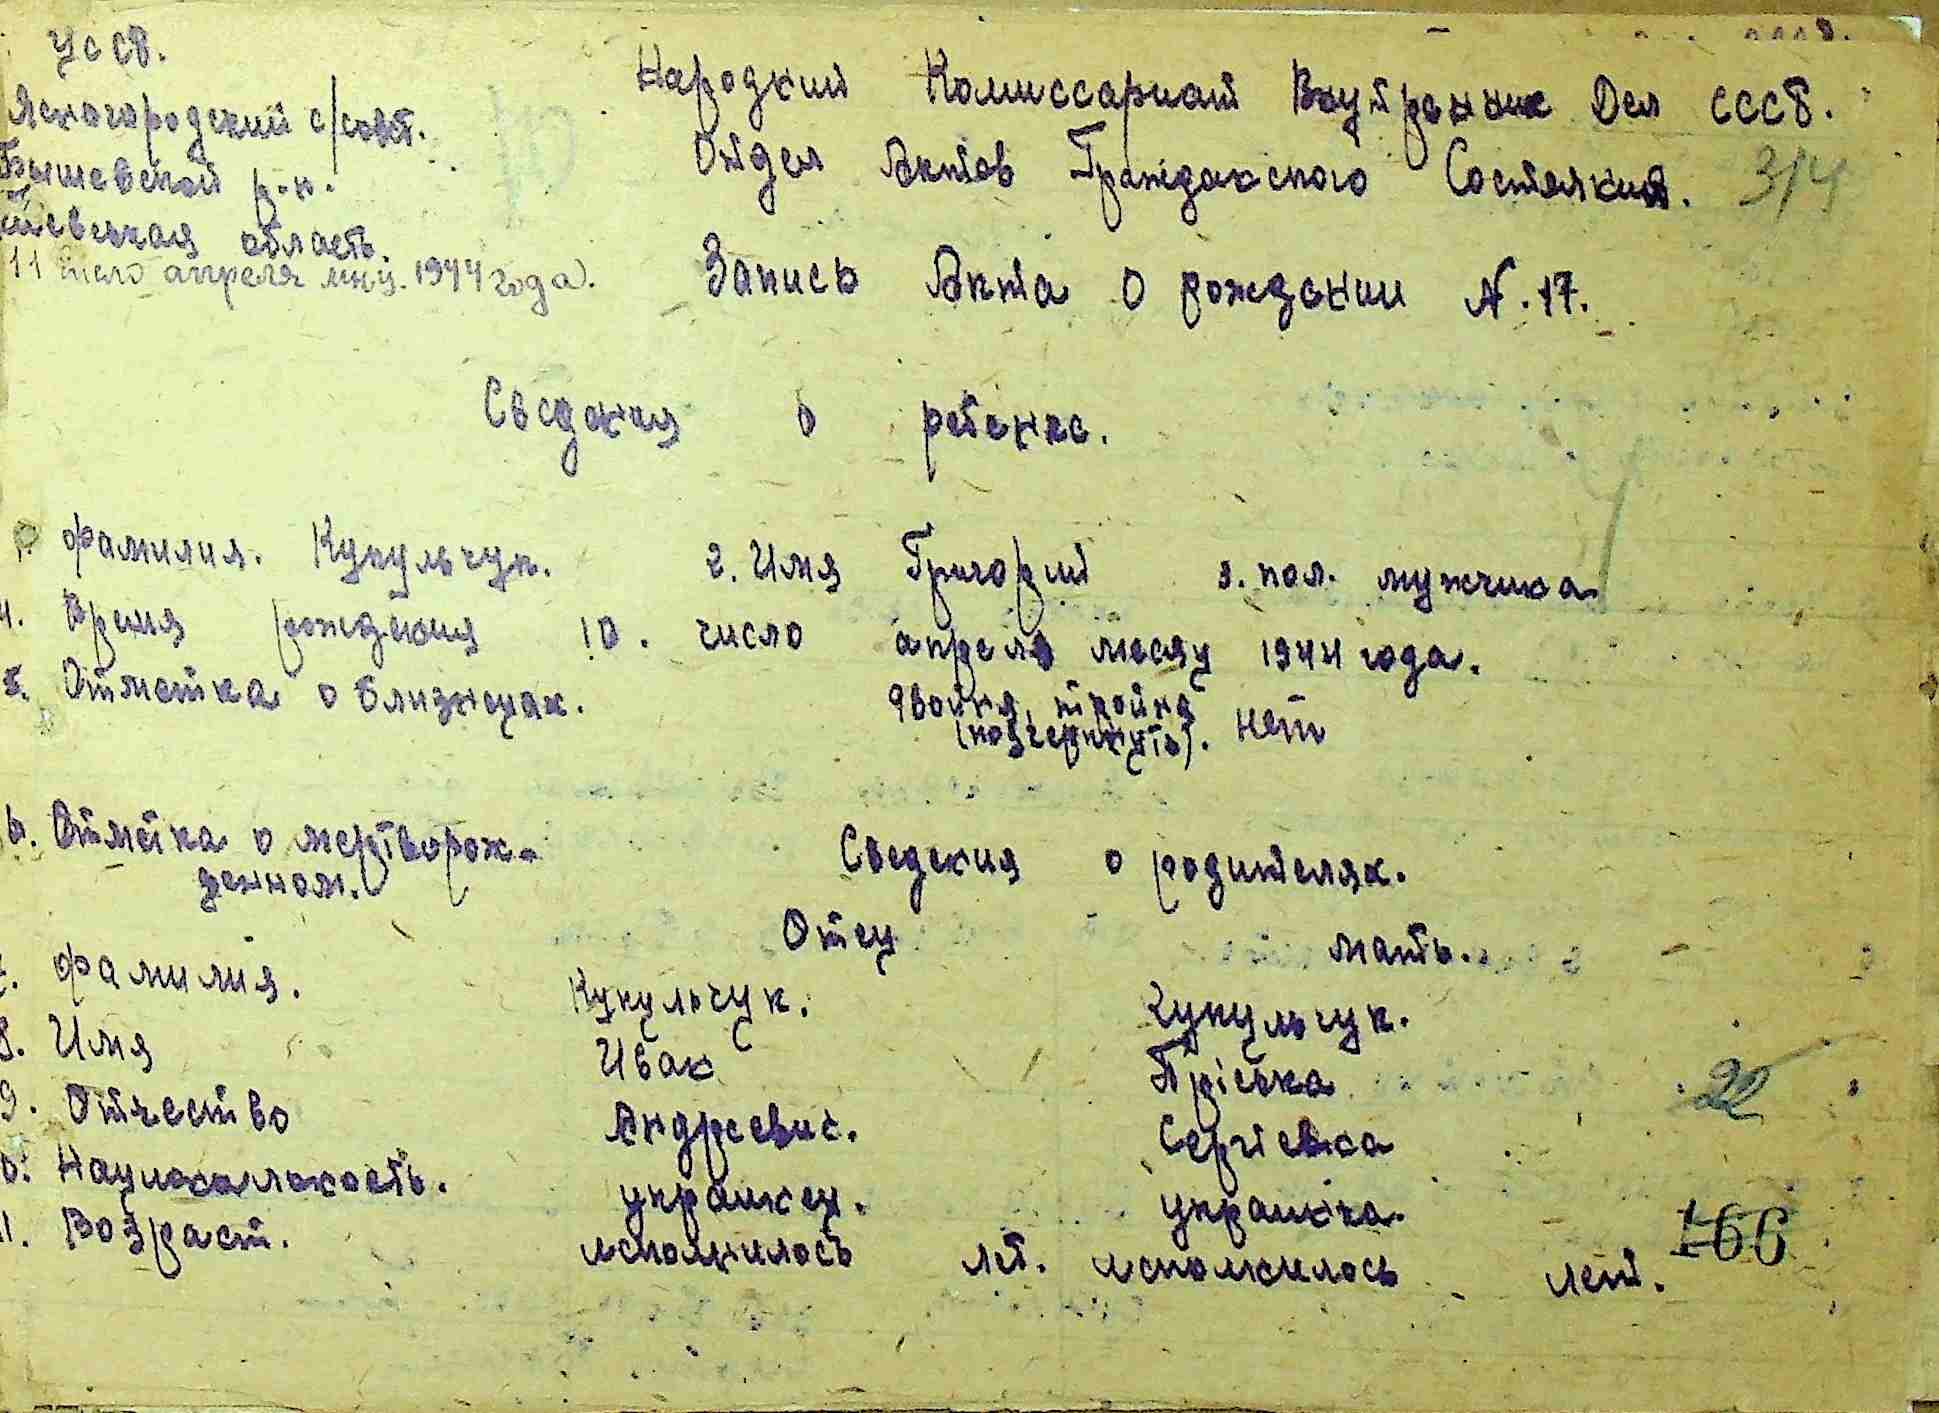 УССР.
Ясногородский с/совет.
Бышевской р-н.
Киевская область.
11 число апреля мну. 1944 года.
Народний Комиссариат Внутренних Дел СССР.
Отдел Актов Гражданского Состояния. 314
Запись Акта о рождении N. 17.
Сведения о ребенке.
1. Фамилия. Кукульчук. 2. Имя Григорий 3. пол. мужчина
4. Время рождения 10. число апреля месяц 1944 года.
5. Отметка о близнецах. двойня, тройня
(подчеркнуть). нет
6. Отметка о мертворож-
денном.
Сведения о родителях.
Отец мать.
7. Фамилия. Кукульчук. Кукульчук.
8. Имя Иван Пріська
9. Отчество Андреевич. Сергіевна
10. Национальность. украинец. украинка.
11. Возраст. исполнилось лет. исполнилось лет.
22
166